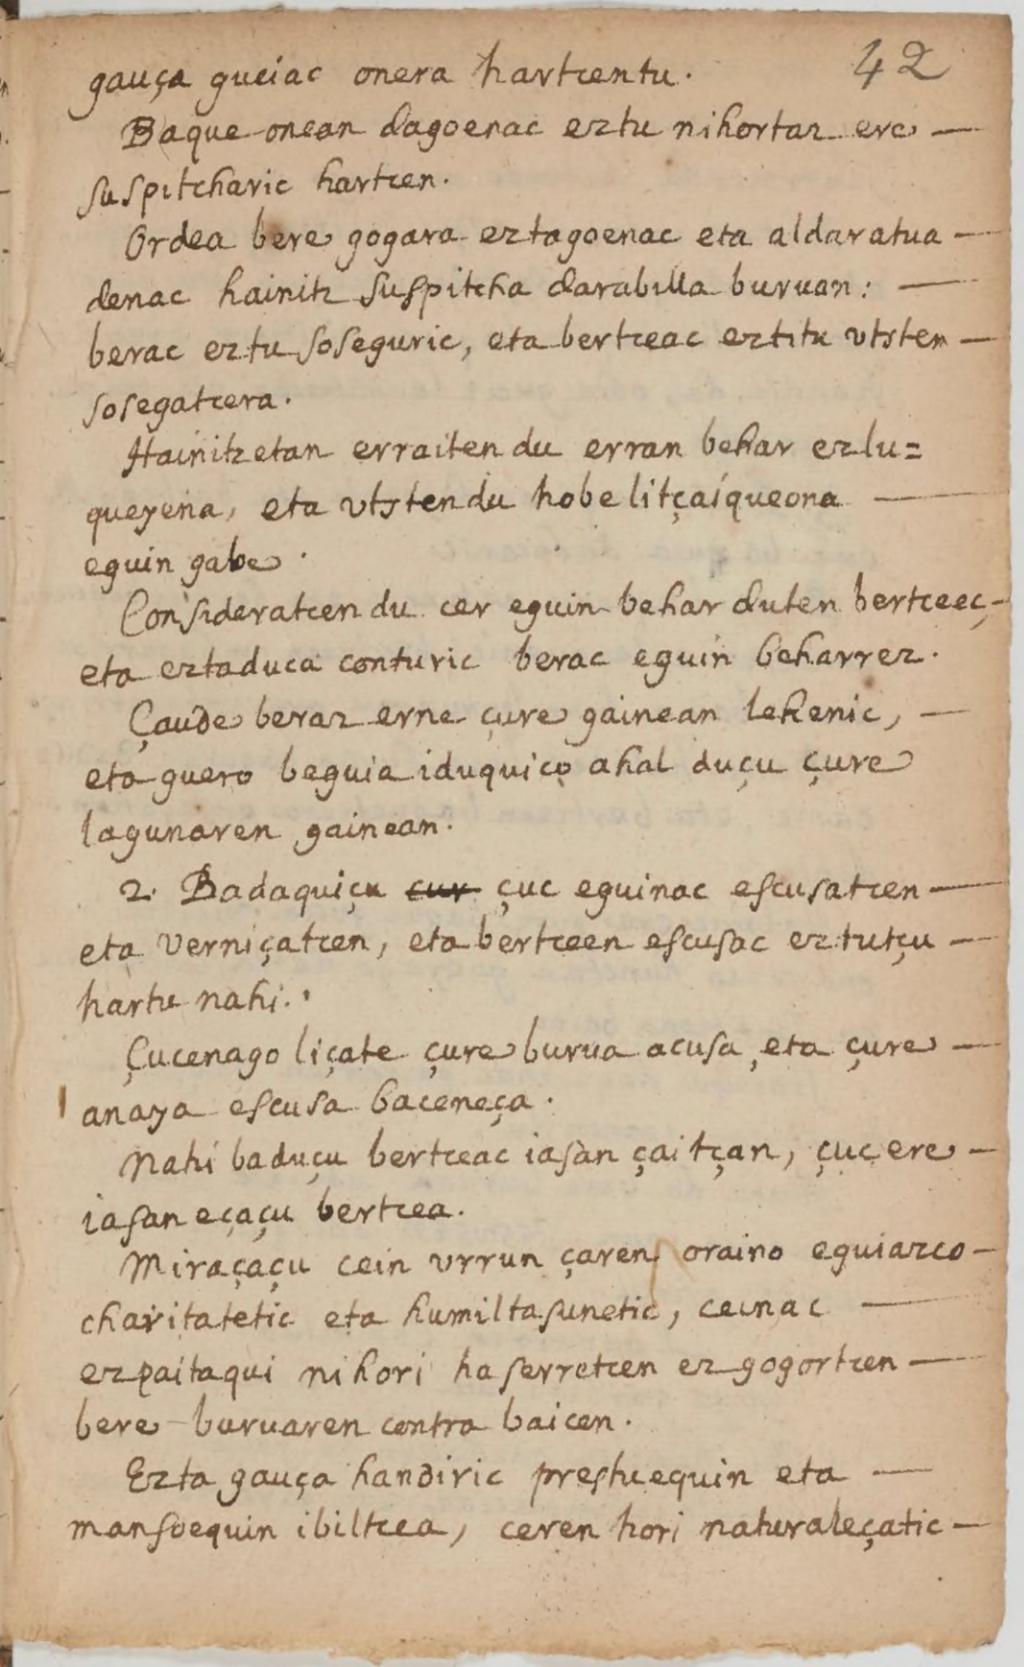 42
gauça guciac onera hartcentu.
Baque onean dagoenac eztu nihortaz ere —
suspitcharic hartcen.
Ordea bere gogara eztagoenac eta aldaratua —
denac hainitz suspitcha darabilla buruan: —
berac eztu soseguric, eta bertceac eztitu vtsten —
sosegatcera.
Hainitzetan erraiten du erran behar ezlu=
queyena, eta vtsten du hobe litçaiqueona —
eguin gabe.
Consideratcen du cer eguin behar duten bertceec, -
eta eztaduca conturic berac eguin beharrez.
Çaude beraz erne çure gainean lehenic, —
eta guero beguia iduquico ahal duçu çure
lagunaren gainean.
2. Badaquiçu cur çuc eguinac escusatcen —
eta verniçatcen, eta bertceen escusac eztutçu —
hartu nahi.
Çucenago liçate çure burua acusa, eta çure —
anaya escusa baceneça.
Nahi baduçu bertceac iasan çaitçan, çuc ere —
iasan eçaçu bertcea.
Miraçaçu cein vrrun çaren oraino eguiazco -
charitatetic eta humiltasunetic, ceinac —
ezpaitaqui nihori haserretcen ez gogortcen —
bere buruaren contra baicen.
Ezta gauça handiric prestuequin eta —
mansoequin ibiltcea, ceren hori naturaleçatic —